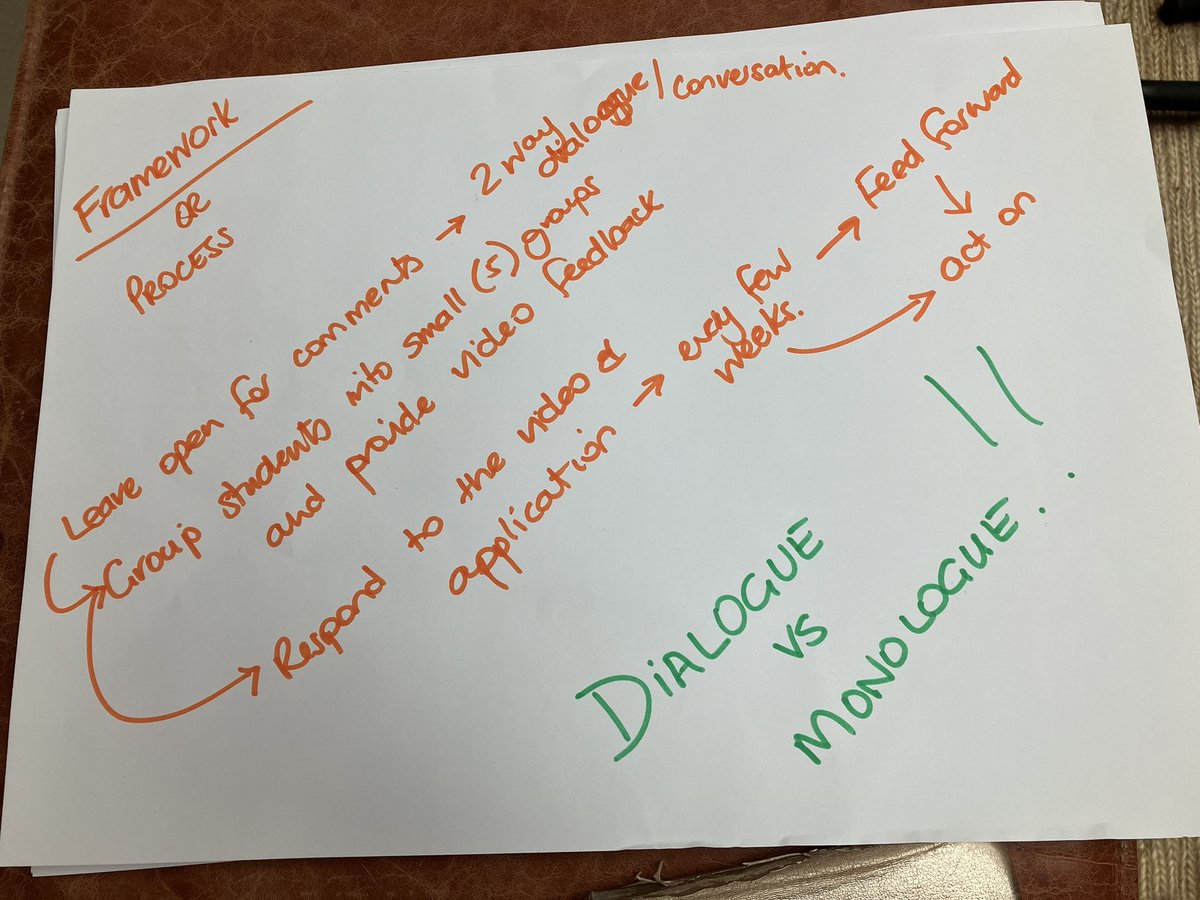 Framework
OR
PROCESS
Leave open for comments → 2 way
dialogue/conversation.
Group students into small (5) groups
and provide video feedback
Respond to the video &
application → every few
weeks. → Feed forward
→ act on
DIALOGUE
vs
MONOLOGUE..!!